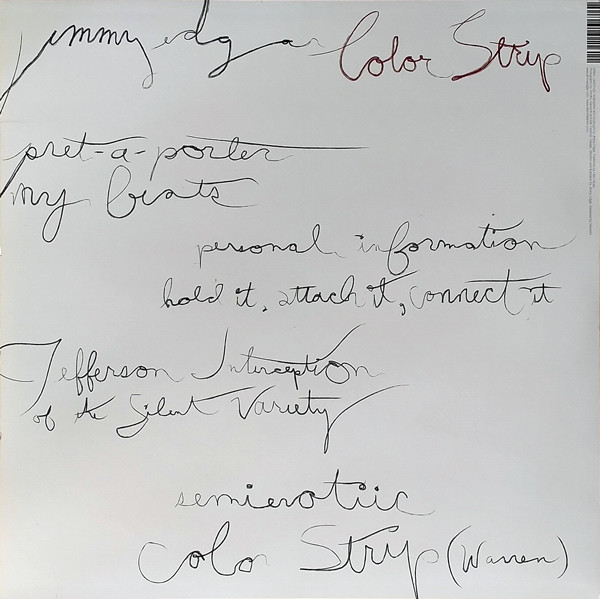 jimmy edgar Color Strip
pret-a-porter
my beats
personal information
hold it, attach it, connect it
Jefferson Interception
of the Silent Variety
semierotiic
Color Strip (Warren)